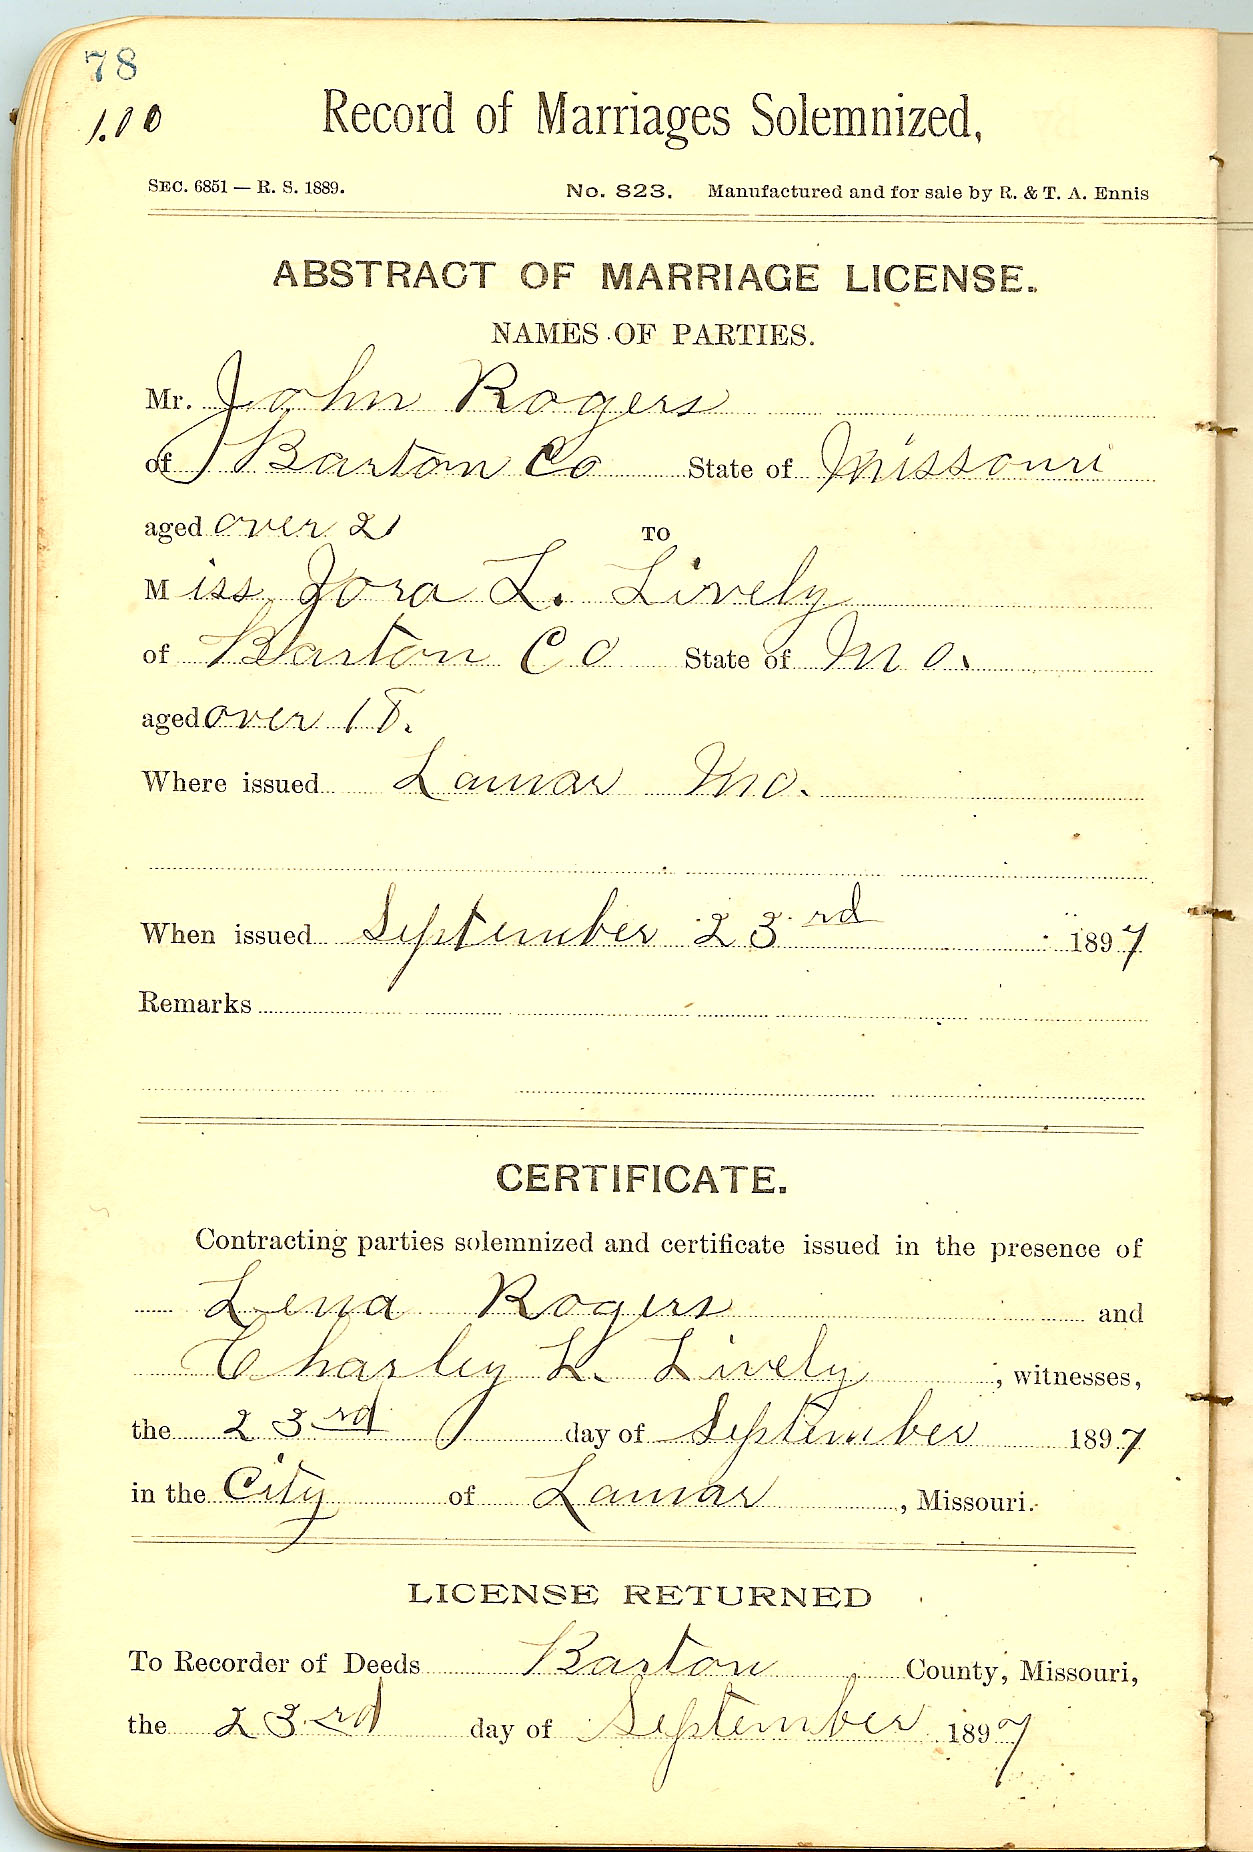 78
1.00
Record of Marriages Solemnized,
SEC. 6851 — R. S. 1889. No. 823. Manufactured and for sale by R. & T. A. Ennis
ABSTRACT OF MARRIAGE LICENSE.
NAMES OF PARTIES.
Mr. John Rogers
of Barton Co State of Missouri
aged over 21 TO
Miss Jora L. Lively
of Barton Co State of Mo.
aged over 18.
Where issued Lamar Mo.
When issued September 23rd 1897
Remarks
CERTIFICATE.
Contracting parties solemnized and certificate issued in the presence of
Lena Rogers and
Charley L. Lively, witnesses,
the 23rd day of September 1897
in the City of Lamar, Missouri.
LICENSE RETURNED
To Recorder of Deeds Barton County, Missouri,
the 23rd day of September 1897